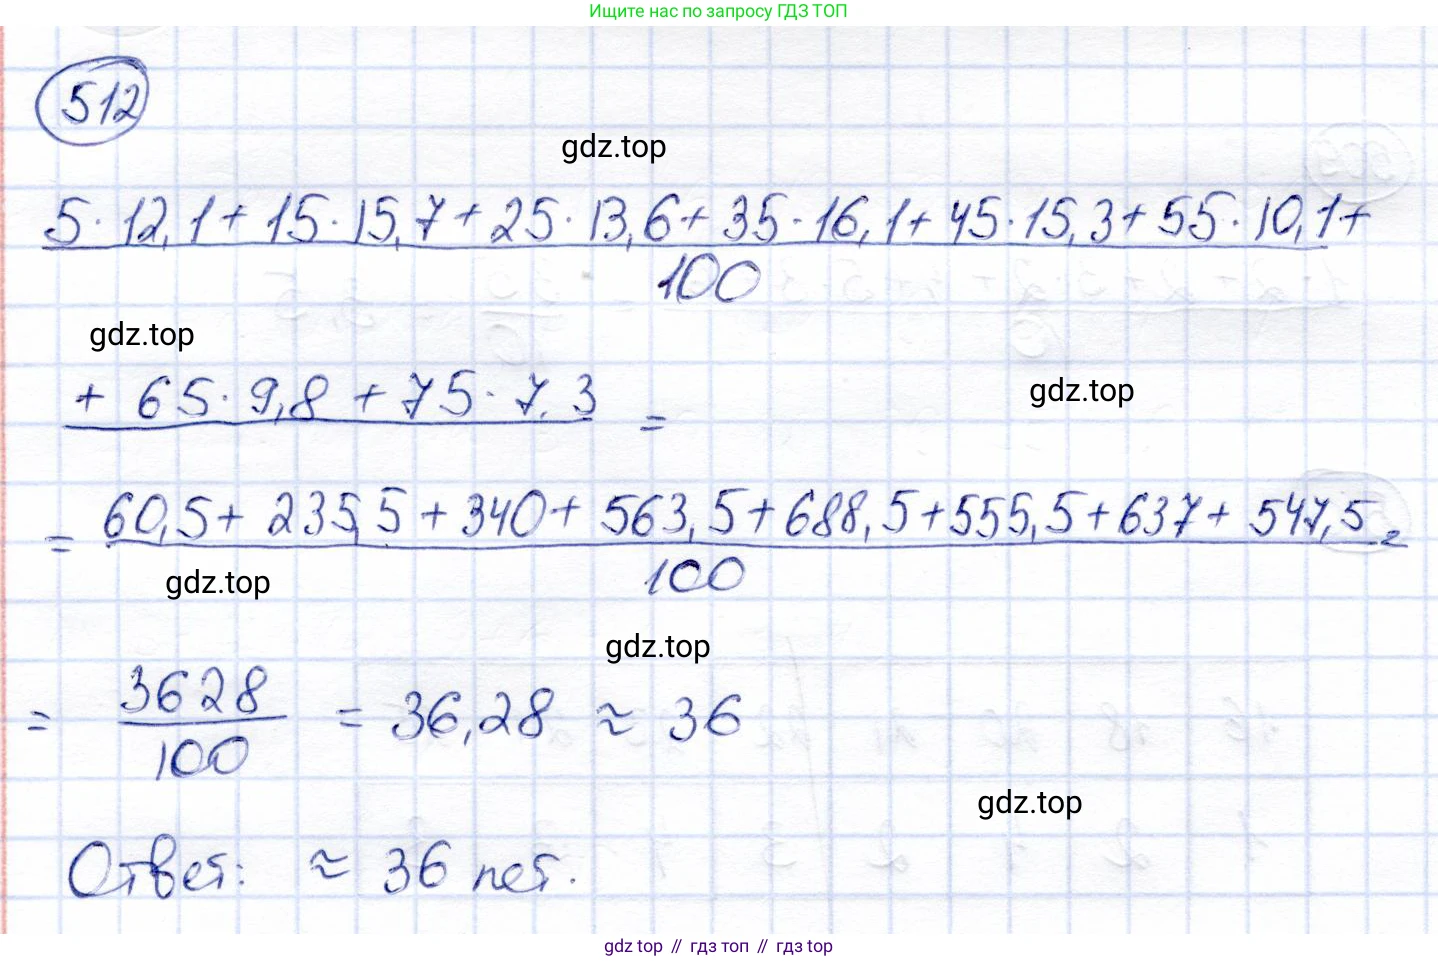 Ищите нас по запросу ГДЗ ТОП
512
gdz.top
5·12,1+15·15,7+25·13,6+35·16,1+45·15,3+55·10,1+
100
gdz.top
+ 65·9,8+75·7,3 =
gdz.top
= 60,5+235,5+340+563,5+688,5+555,5+637+547,5 =
100
gdz.top
gdz.top
= 3628/100 = 36,28 ≈ 36
gdz.top
Ответ: ≈ 36 лет.
gdz top // гдз топ // гдз top